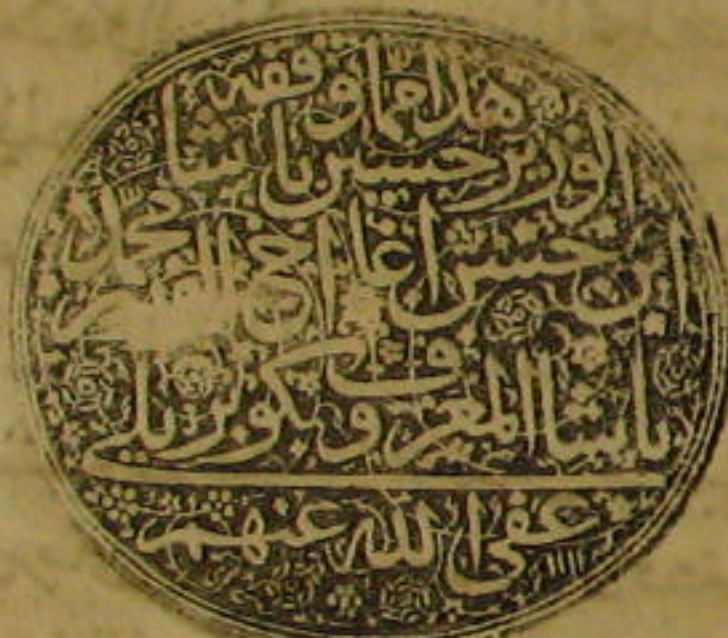 هذا مما وقفه
الوزير حسين باشا
ابن حسن اغا اخ محمد
باشا المعروف بكوبريلي
عفى الله عنهم ١١١١